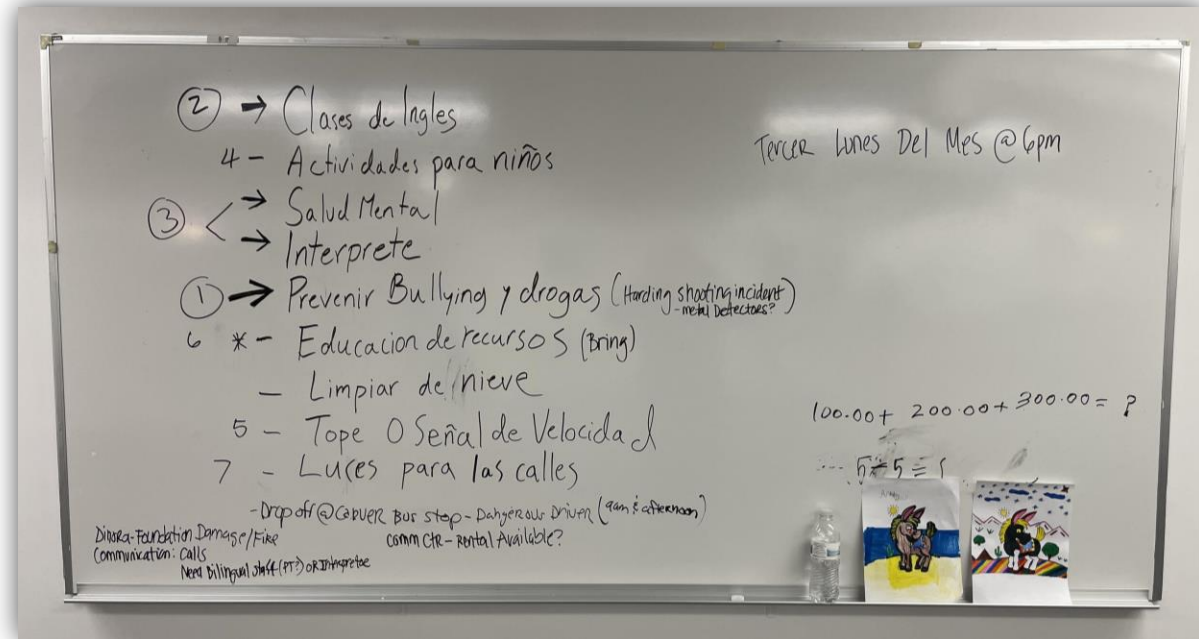 ② → Clases de Ingles
4 - Actividades para niños
③ < → Salud Mental
→ Interprete
① → Prevenir Bullying y drogas (Harding shooting incident
- metal Detectors?)
6 * - Educacion de recursos (Bring)
- Limpiar de nieve
5 - Tope O Señal de Velocidad
7 - Luces para las calles
- Drop off @ Carver Bus stop - Dangerous Driver (am & afternoon)
Comm Ctr - Rental Available?
Dinora - Foundation Damage/Fire
Communication: Calls
Need Bilingual staff (PT?) OR Intrepretae
Tercer Lunes Del Mes @ 6pm
100.00 + 200.00 + 300.00 = ?
5 ÷ 5 =